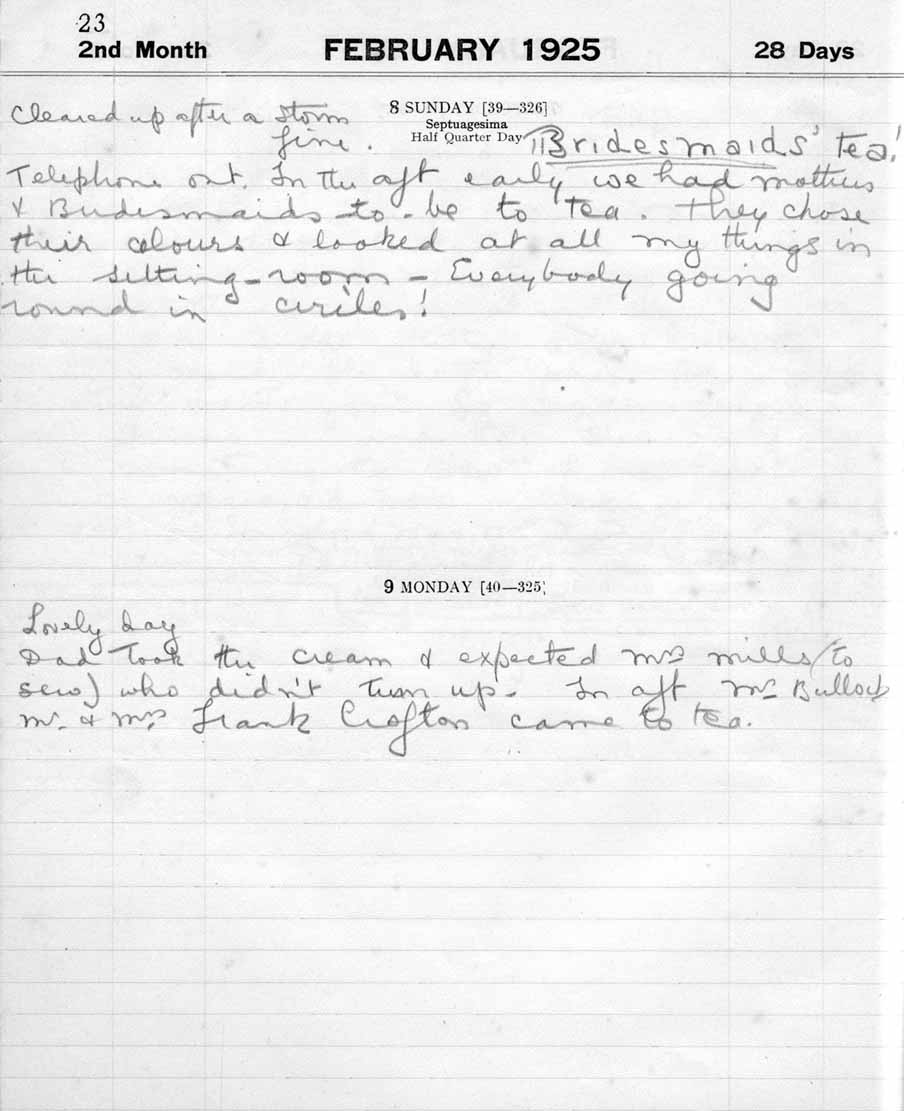 23
2nd Month FEBRUARY 1925 28 Days
8 SUNDAY [39—326]
Septuagesima
Half Quarter Day
Cleared up after a storm
fine.
"Bridesmaids' tea!
Telephone out. In the aft early we had mothers
& Bridesmaids-to-be to tea. They chose
their colours & looked at all my things in
the sitting-room - Everybody going
round in circles!
9 MONDAY [40—325]
Lovely day
Dad took the cream & expected Mrs Mills (to
sew) who didn't turn up. In aft Mrs Bullock
Mr. & Mrs Frank Crofton came to tea.